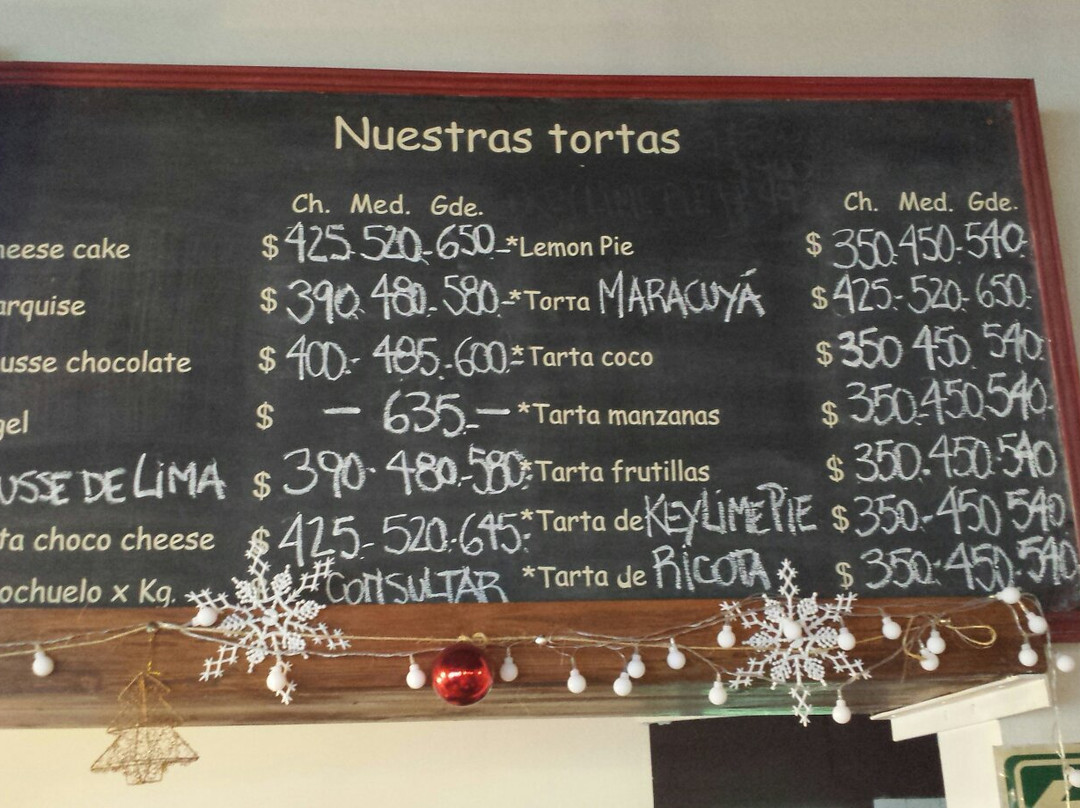 Nuestras tortas
Ch. Med. Gde. Ch. Med. Gde.
heese cake $ 425.520.-650.- *Lemon Pie $ 350.450.-540.
arquise $ 390. 480.-580.- *Torta MARACUYÁ $ 425.-520.-650.
usse chocolate $ 400.- 485.-600.- *Tarta coco $ 350 450. 540.
gel $ — 635.- — *Tarta manzanas $ 350.-450.540.
USSE DE LIMA $ 390. 480.-580. *Tarta frutillas $ 350.-450.-540
ta choco cheese $ 425.-520.-645.- *Tarta de KEY LIME PIE $ 350.-450 540.
ochuelo x Kg. CONSULTAR *Tarta de RICOTA $ 350.-450.540